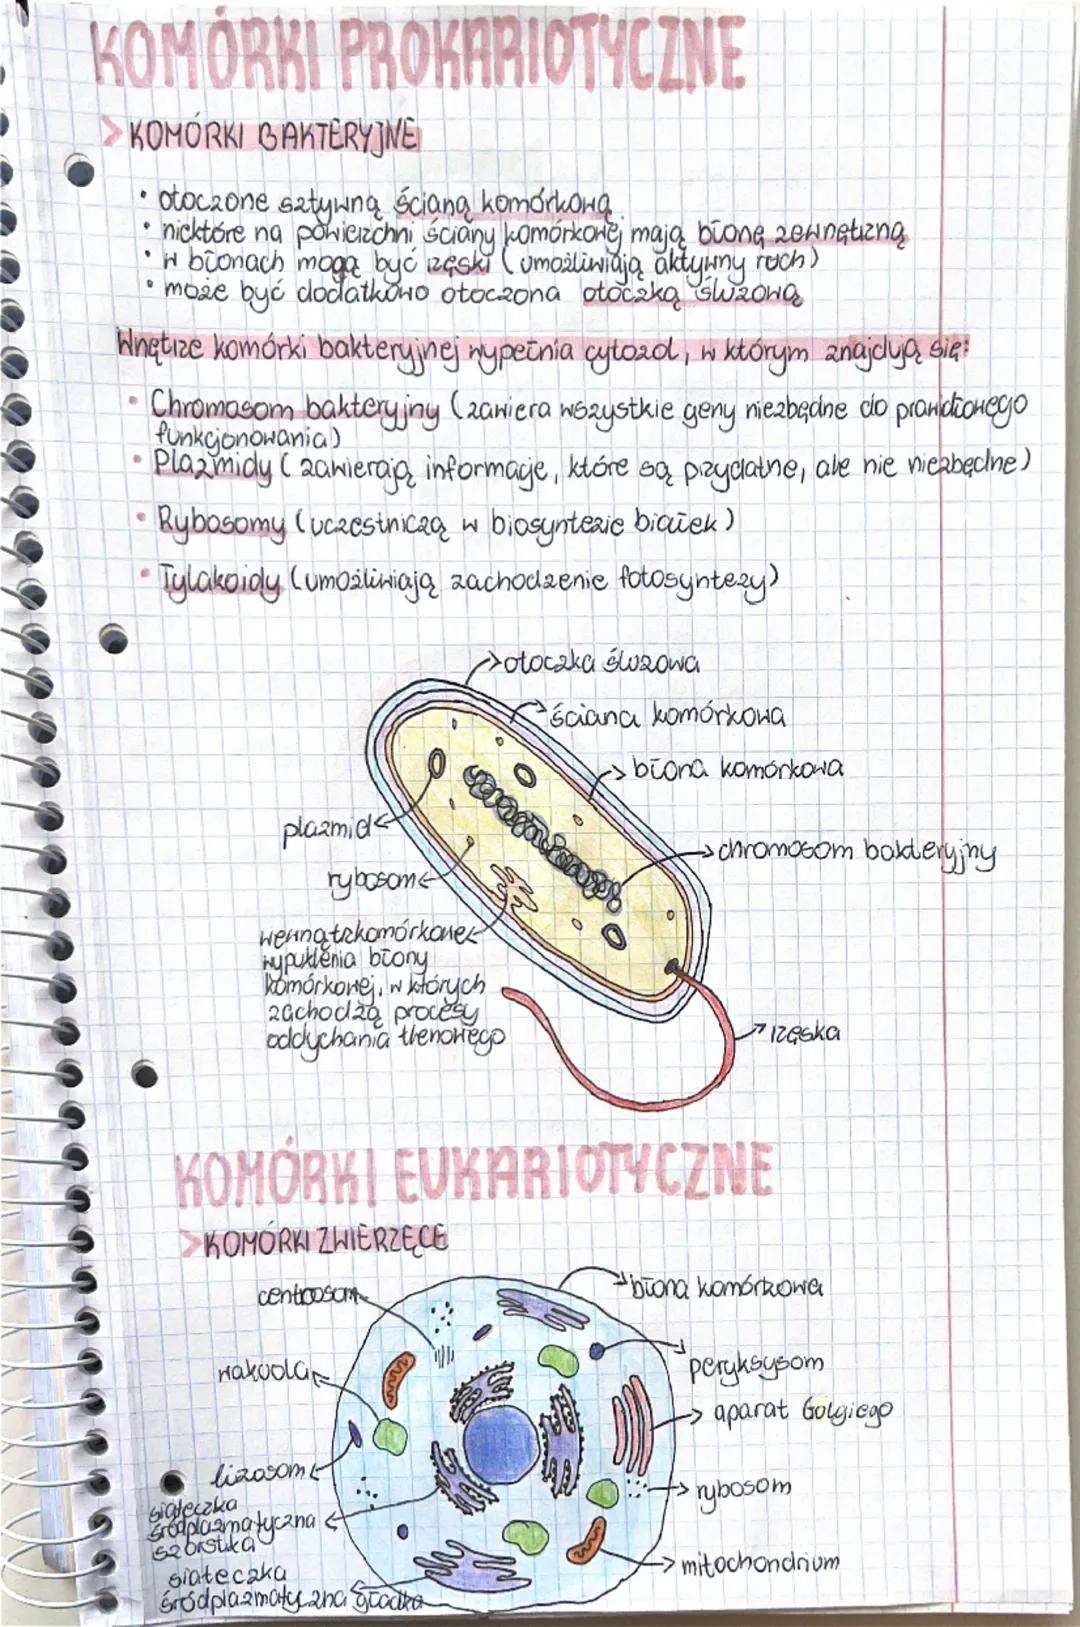 KOMÓRKI PROKARIOTYCZNE
> KOMÓRKI BAKTERYJNE
• otoczone sztywną ścianą komórkową
• niektóre na powierzchni ściany komórkowej mają błonę zewnętrzną
• w błonach mogą być rzęski (umożliwiają aktywny ruch)
• może być dodatkowo otoczona otoczką śluzową
Wnętrze komórki bakteryjnej wypełnia cytozol, w którym znajdują się:
• Chromosom bakteryjny (zawiera wszystkie geny niezbędne do prawidłowego
funkcjonowania)
• Plazmidy (zawierają informacje, które są przydatne, ale nie niezbędne)
• Rybosomy (uczestniczą w biosyntezie białek)
• Tylakoidy (umożliwiają zachodzenie fotosyntezy)
otoczka śluzowa
ściana komórkowa
błona komórkowa
plazmid
chromosom bakteryjny
rybosom
wewnątrzkomórkowe
wypuklenia błony
komórkowej, w których
zachodzą procesy
oddychania tlenowego
rzęska
KOMÓRKI EUKARIOTYCZNE
> KOMÓRKI ZWIERZĘCE
centrosom
błona komórkowa
wakuola
peryksysom
aparat Golgiego
lizosom
rybosom
siateczka
śródplazmatyczna
szorstka
mitochondrium
siateczka
śródplazmatyczna gładka